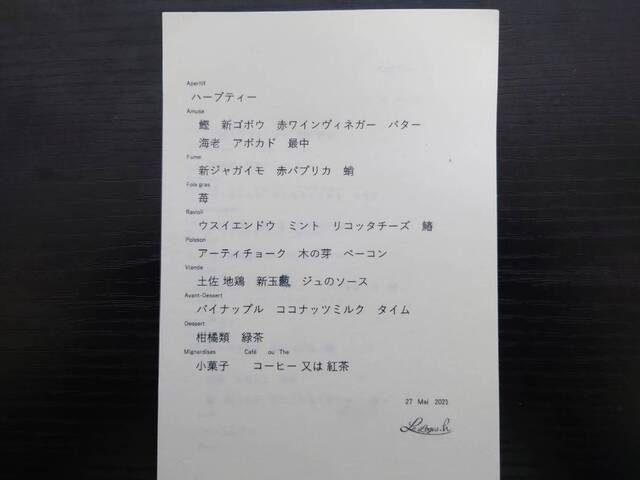 Aperitif
ハーブティー
Amuse
鰹 新ゴボウ 赤ワインヴィネガー バター
海老 アボカド 最中
Fume
新ジャガイモ 赤パプリカ 蛸
Foie gras
苺
Ravioli
ウスイエンドウ ミント リコッタチーズ 鰆
Poisson
アーティチョーク 木の芽 ベーコン
Viande
土佐 地鶏 新玉 ジュのソース
Avant-Dessert
パイナップル ココナッツミルク タイム
Dessert
柑橘類 緑茶
Mignardises Café ou The
小菓子 コーヒー 又は 紅茶
27 Mai 2021